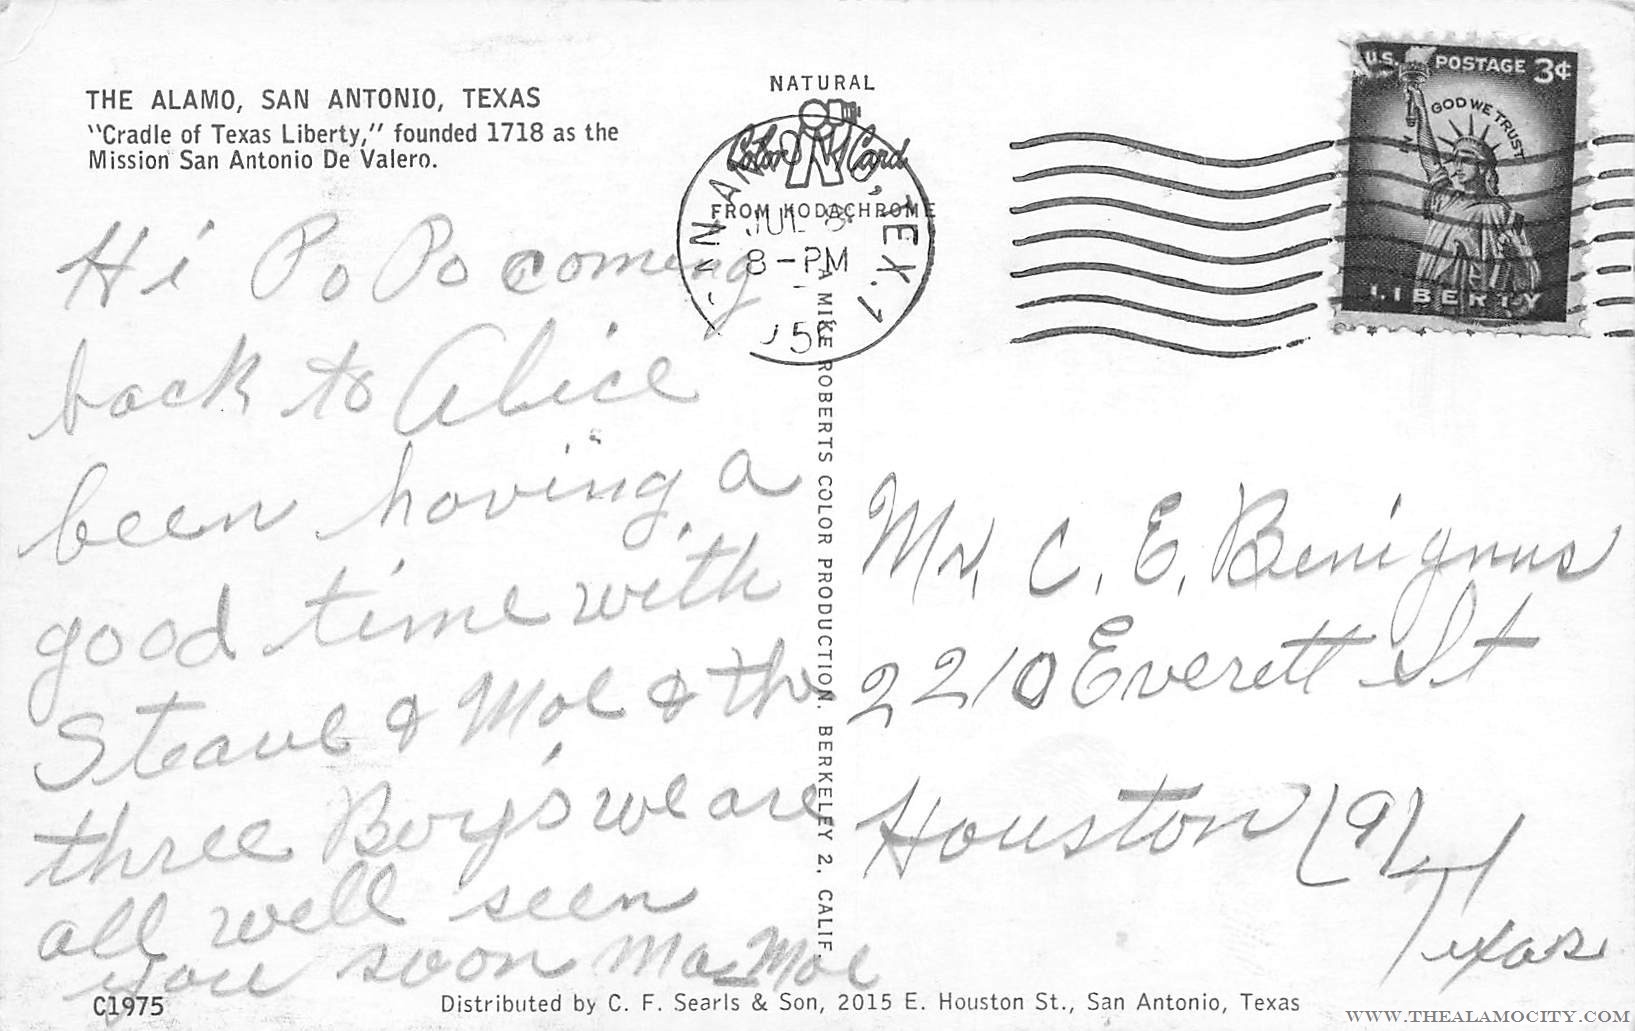 THE ALAMO, SAN ANTONIO, TEXAS
"Cradle of Texas Liberty," founded 1718 as the
Mission San Antonio De Valero.
Hi Po Po coming
back to Alice
been having a
good time with
Steave & Moe & the
three Boy's we are
all well seen
you soon Ma-Moe
C1975
NATURAL
Color Card
FROM KODACHROME
A MIKE ROBERTS COLOR PRODUCTION. BERKELEY 2, CALIF.
TEX. 1
JUL 8
8-PM
U.S. POSTAGE 3¢
IN GOD WE TRUST
LIBERTY
Mr. C. E. Benignus
2210 Everett St
Houston (9)
Texas
Distributed by C. F. Searls & Son, 2015 E. Houston St., San Antonio, Texas
WWW.THEALAMOCITY.COM